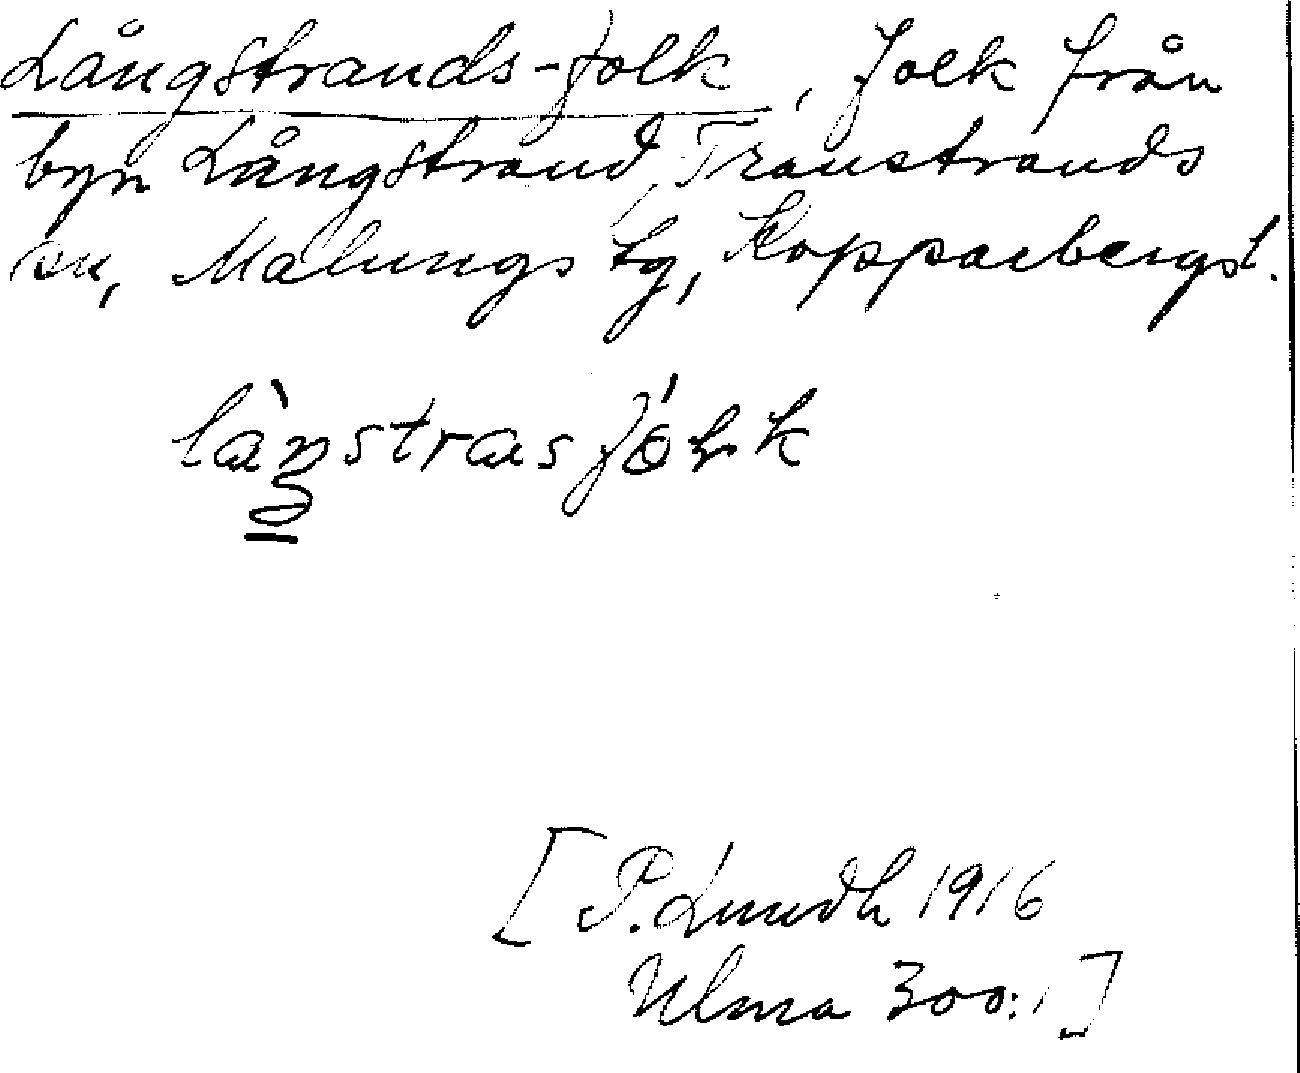 Långstrands-folk, folk från
byn Långstrand, Transtrands
sn, Malungs tg, Kopparbergs l.
[P. Lundh 1916
Ulma 300:1]